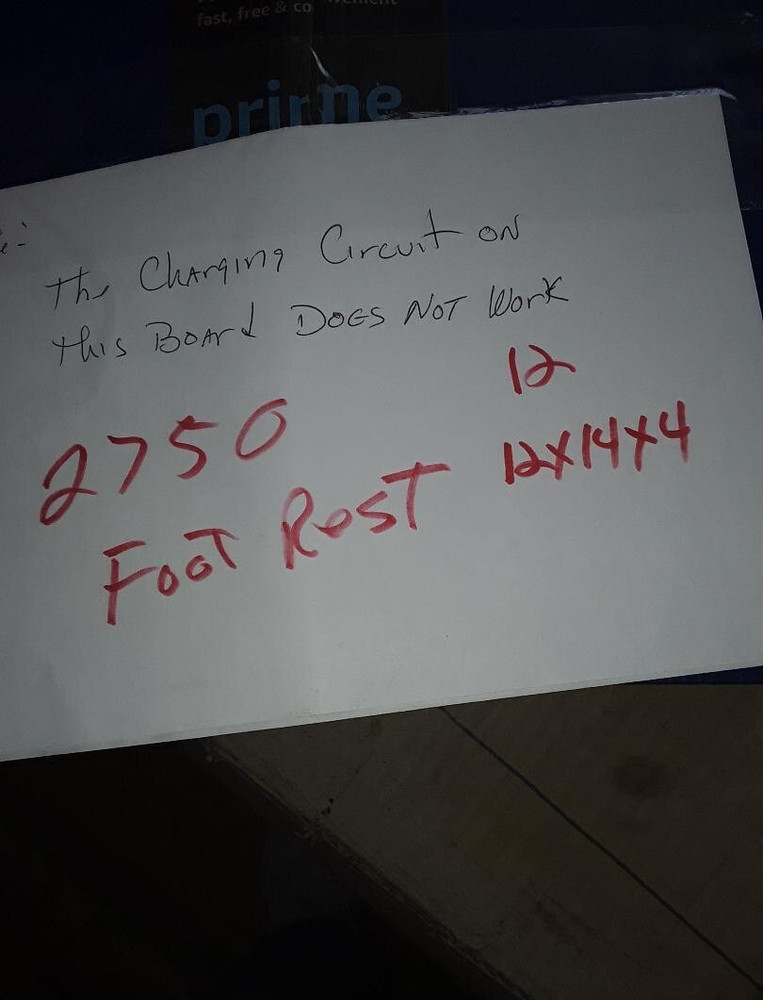 fast, free & co
prime
The Charging Circuit on
this Board Does Not Work
12
2750
12x14x4
Foot Rest